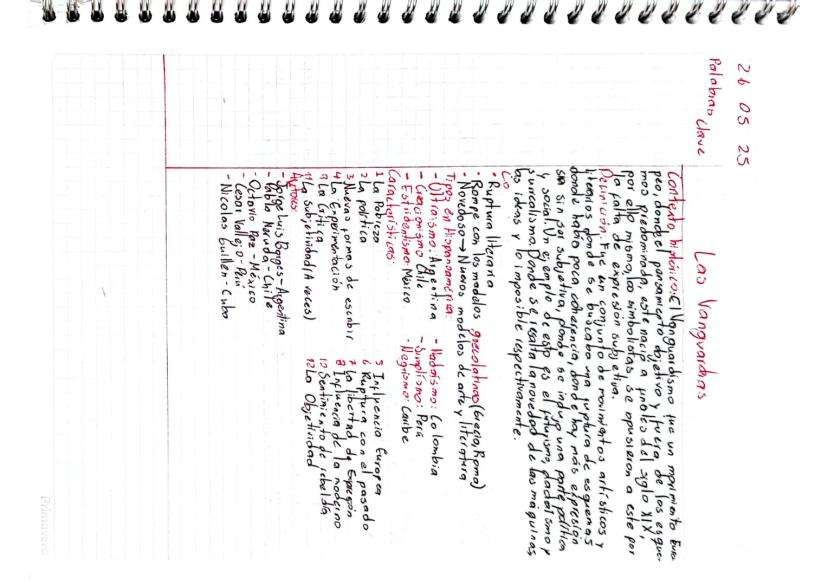 26 05 25
Palabras clave
Las Vanguardias
Contexto histórico: El Vanguardismo fue un movimiento Euro-
peo, donde el pensamiento objetivo y fuera de los esque-
mas predominada, este nació a finales del siglo XIX,
por el mismo, los simbolistas, se opusieron a este por
la falta de expresión subjetiva.
Definición: Fue un conjunto de movimientos artísticos y
literarios donde se buscaba una ruptura de esquemas
donde había poca coherencia, donde hay más expresión
sea sin ser subjetiva, donde se incluyo una parte política
y social (Un ejemplo de esto es el futurismo, dadaísmo y
surrealismo. Donde se resalta la novedad de las máquinas
las ideas y lo imposible respectivamente.
Co
• Ruptura literaria
• Rompe con los modelos grecolatinos (Grecia, Roma)
• Novedoso → Nuevos modelos de arte y literatura
Tipos en Hispanoamérica:
- Ultraísmo: Argentina - Nadaísmo: Colombia
- Creacionismo: Chile - Simplismo: Perú
- Estridentismo: México - Negrismo: Caribe
Características:
1 La Pobreza 5 Influencia Europea
2 La política 6 Ruptura con el pasado
3 Nuevas formas de escribir 7 La libertad de Expresión
4 La Experimentación 8 Influencia de lo moderno
9 La Crítica 10 Sentimiento de rebeldía
11 La subjetividad (A veces) 12 La Objetividad
Autores
- Jorge Luis Borges - Argentina
- Pablo Neruda - Chile
- Octavio Paz - México
- Cesar Vallejo - Perú
- Nicolas Guillen - Cuba
Primavera